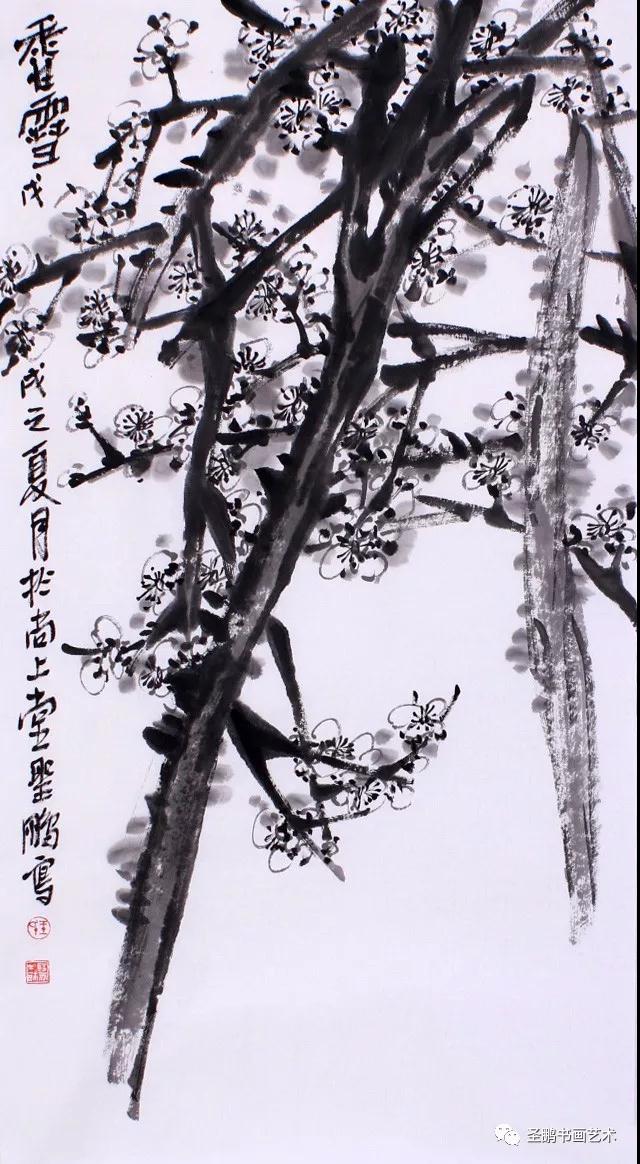 香雪戊戌之夏月於尚上堂聖鵬寫
圣鹏书画艺术